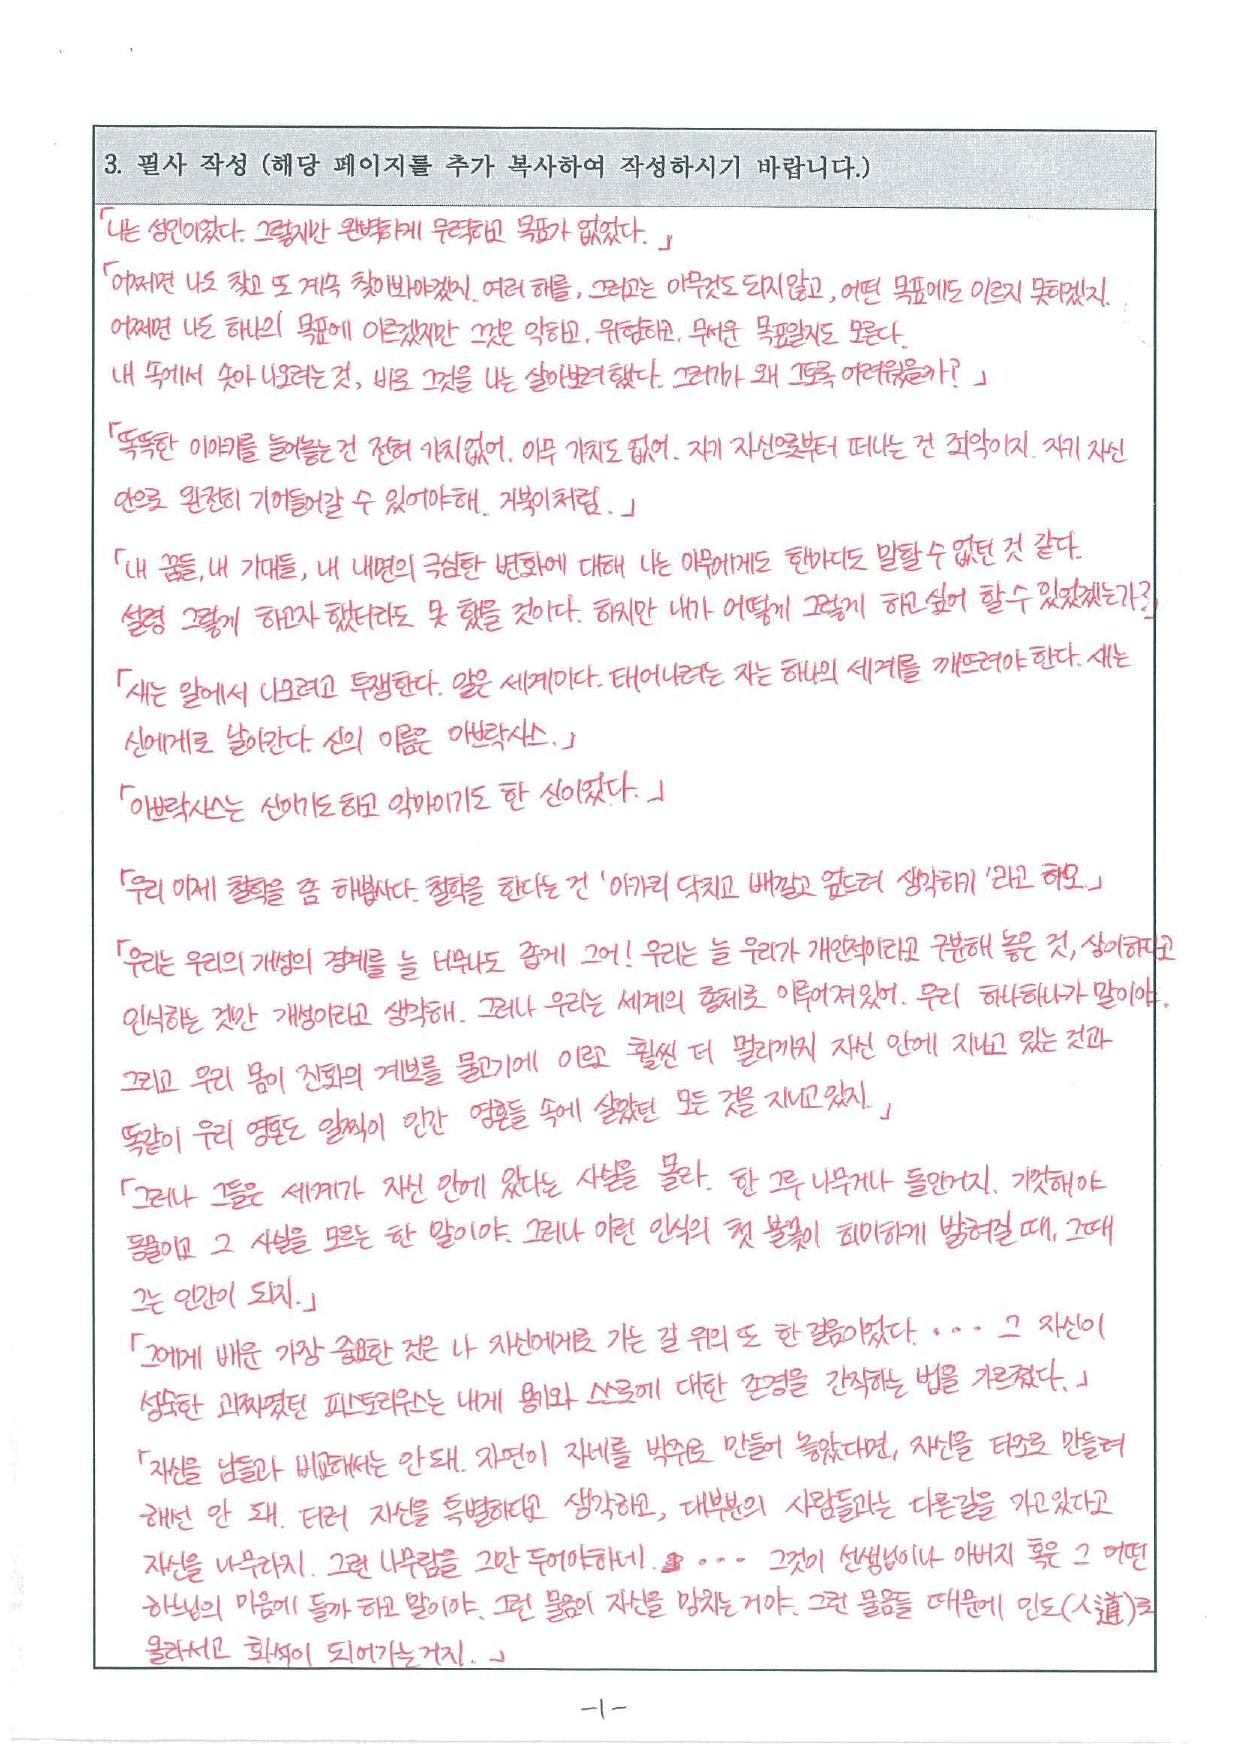 3. 필사 작성 (해당 페이지를 추가 복사하여 작성하시기 바랍니다.)
「나는 성인이었다. 그렇지만 완벽하게 무력하고 목표가 없었다.」
「어쩌면 나도 찾고 또 계속 찾아봐야겠지. 여러 해를, 그러고는 아무것도 되지 않고, 어떤 목표에도 이르지 못하겠지.
어쩌면 나도 하나의 목표에 이르겠지만 그것은 악하고, 위험하고, 무서운 목표일지도 모른다.
내 속에서 솟아 나오려는 것, 바로 그것을 나는 살아보려 했다. 그러기가 왜 그토록 어려웠을까?」
「똑똑한 이야기를 늘어놓는 건 전혀 가치없어. 아무 가치도 없어. 자기 자신으로부터 떠나는 건 죄악이지. 자기 자신
안으로 완전히 기어들어갈 수 있어야해. 거북이처럼.」
「내 꿈들, 내 기대들, 내 내면의 극심한 변화에 대해 나는 아무에게도 한마디도 말할 수 없던 것 같다.
설령 그렇게 하고자 했더라도 못 했을 것이다. 하지만 내가 어떻게 그렇게 하고 싶어 할 수 있었겠는가?」
「새는 알에서 나오려고 투쟁한다. 알은 세계이다. 태어나려는 자는 하나의 세계를 깨뜨려야 한다. 새는
신에게로 날아간다. 신의 이름은 아브락사스.」
「아브락사스는 신이기도 하고 악마이기도 한 신이었다.」
「우리 이제 철학을 좀 해봅시다. 철학을 한다는 건 '아가리 닥치고 배깔고 엎드려 생각하기'라고 하오.」
「우리는 우리의 개성의 경계를 늘 너무나도 좁게 그어! 우리는 늘 우리가 개인적이라고 구분해 놓은 것, 상이하다고
인식하는 것만 개성이라고 생각해. 그러나 우리는 세계의 총체로 이루어져있어. 우리 하나하나가 말이야.
그리고 우리 몸이 진화의 계보를 물고기에 이르고 훨씬 더 멀리까지 자신 안에 지니고 있는 것과
똑같이 우리 영혼도 일찍이 인간 영혼들 속에 살았던 모든 것을 지니고 있지.」
「그러나 그들은 세계가 자신 안에 있다는 사실을 몰라. 한 그루 나무거나 돌인거지. 기껏해야
동물이고 그 사실을 모르는 한 말이야. 그러나 이런 인식의 첫 불꽃이 희미하게 밝혀질 때, 그때
그는 인간이 되지.」
「그에게 배운 가장 중요한 것은 나 자신에게로 가는 길 위의 또 한 걸음이었다. ··· 그 자신이
성숙한 괴짜였던 피스토리우스는 내게 용기와 스스로에 대한 존경을 간직하는 법을 가르쳤다.」
「자신을 남들과 비교해서는 안 돼. 자연이 자네를 박쥐로 만들어 놓았다면, 자신을 타조로 만들려
해선 안 돼. 더러 자신을 특별하다고 생각하고, 대부분의 사람들과는 다른길을 가고 있다고
자신을 나무라지. 그런 나무람을 그만 두어야하네. ··· 그것이 선생님이나 아버지 혹은 그 어떤
하느님의 마음에 들까 하고 말이야. 그런 물음이 자신을 망치는거야. 그런 물음들 때문에 인도(人道)로
올라서고 화석이 되어가는거지.」
-1-